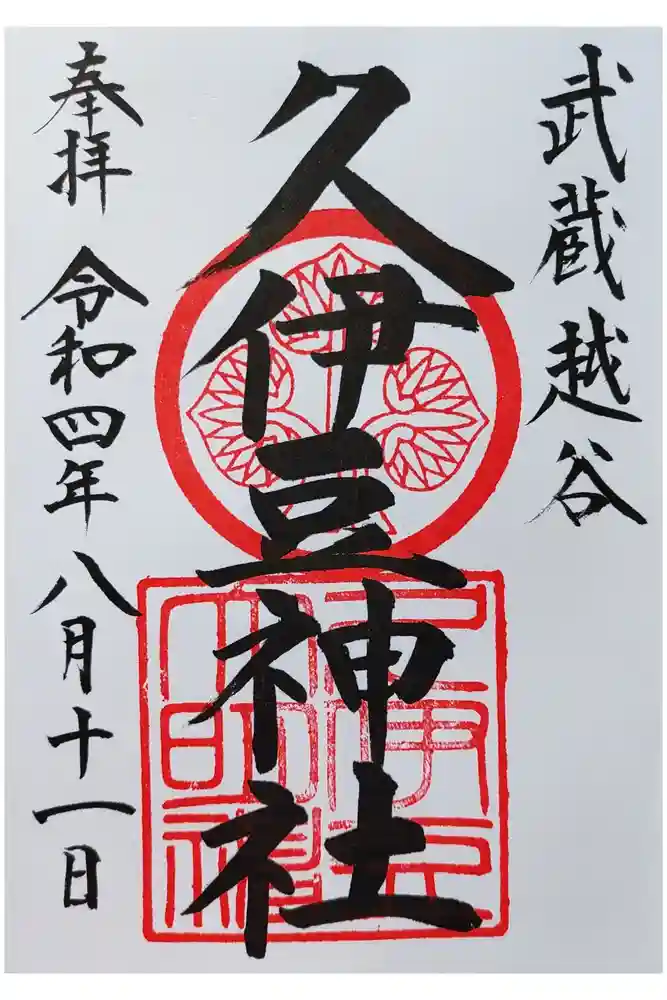 武蔵越谷
久伊豆神社
奉拝 令和四年八月十一日